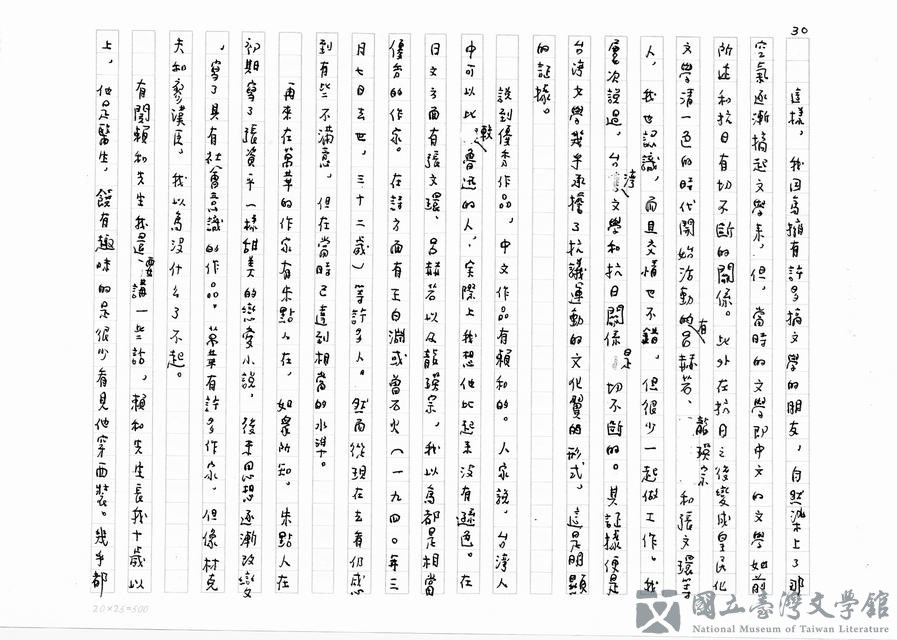 30
這樣，我因為擁有許多搞文學的朋友，自然染上了那
空氣逐漸搞起文學來，但，當時的文學即中文的文學如前
所述和抗日有切不斷的關係。此外在抗日之後變成皇民化
文學清一色的時代開始活動的有呂赫若、龍瑛宗和張文環等
人，我也認識，而且交情也不錯，但很少一起做工作。我
屢次說過，台灣文學和抗日關係是切不斷的。其証據便是
台灣文學幾乎承擔了抗議運動的文化翼的形式，這是明顯
的証據。
說到優秀作品，中文作品有賴和的。人家說，台灣人
中可以比較魯迅的人，實際上我想他比起來沒有遜色。在
日文方面有張文環、呂赫若以及龍瑛宗，我以為都是相當
優秀的作家。在詩方面有王白淵或曾石火（一九四〇年三
月七日去世，三十二歲）等許多人。然而從現在去看仍感
到有些不滿意，但在當時已達到相當的水準。
再來在萬華的作家有朱點人在，如眾所知，朱點人在
初期寫了張資平一樣甜美的戀愛小說，後來思想逐漸改變
，寫了具有社會意識的作品。萬華有許多作家，但像林克
夫和廖漢臣，我以為沒什么了不起。
有關賴和先生我還要講一些話，賴和先生長我十歲以
上，他是醫生，饒有趣味的是很少看見他穿西裝。幾乎都
20×25=500
國立臺灣文學館
National Museum of Taiwan Literature